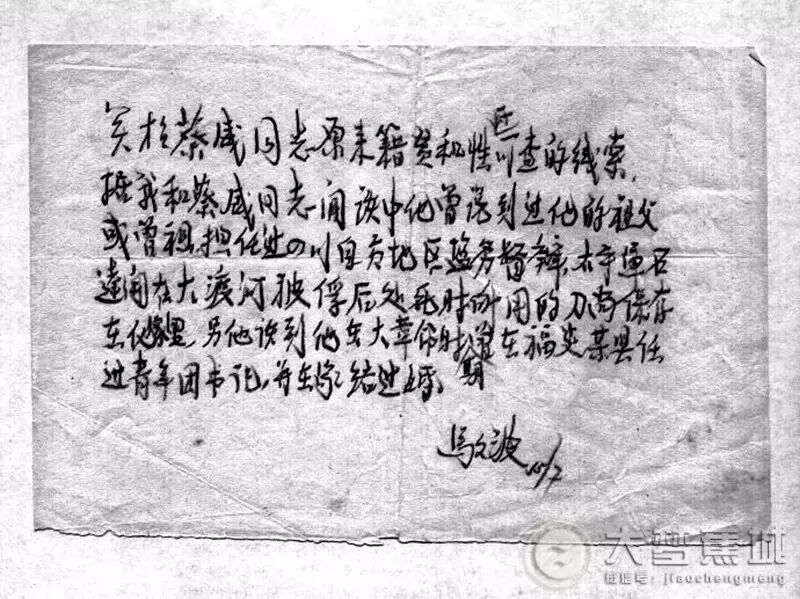 关于蔡威同志原来籍贯和性氏可查的线索,
据我和蔡威同志闲谈中他曾谈到过他的祖父
或曾祖担任过四川自贡地区盐务督办、太平军石
达开在大渡河被俘后处死时所用的刀尚保存
在他家里。另他谈到他在大革命时期曾在福建某县任
过青年团书记,并在家结过婚。
马文波
大梦蕉城
微信号:jiaochengmeng